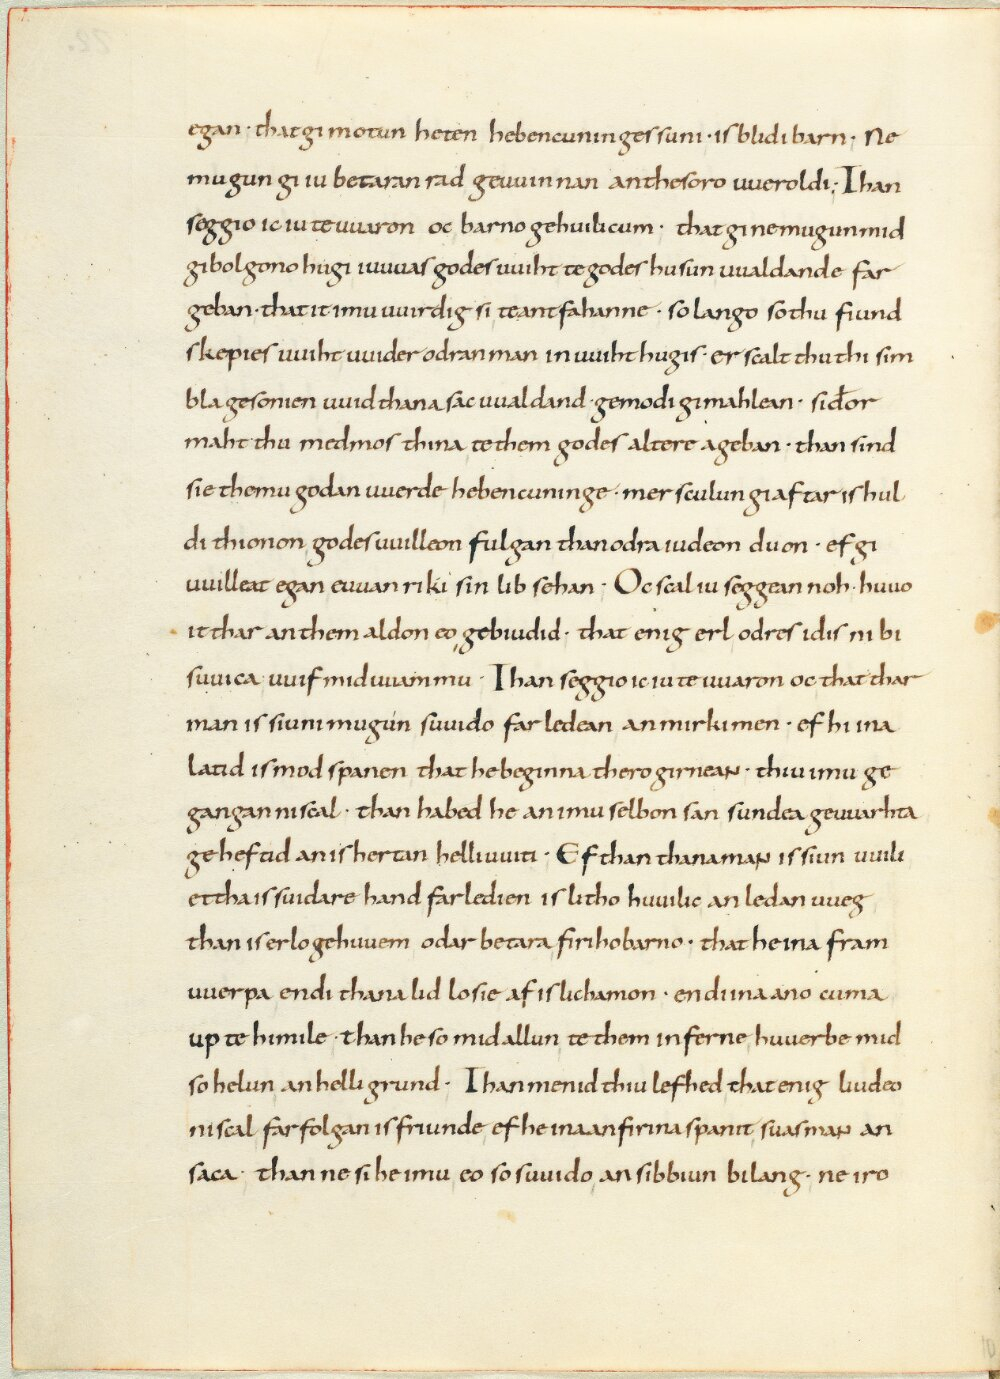 egan · that gi motun heten hebencuninges suni · is blidi barn · Ne
mugun gi iu betaran rad geuuinnan an thesoro uueroldi ; Than
seggio ic iu te uuaron oc barno gehuilicum · that gi ne mugun mid
gibolgono hugi iuuuas godes uuiht te godes husun uualdande far
geban · that it imu uuirdig si te antfahanne · so lango so thu fiund
skepies uuiht uuider odran man inuuiht hugis · er scalt thu thi sim
bla gesonien uuid thana sacuualdand · gemodi gimahlean · siđor
maht thu medmos thina te them godes altere ageban · than sind
sie themu godan uuerde hebencuninge · mer sculun gi aftar is hul
di thionon godes uuilleon fulgan than odra iudeon duon · ef gi
uuilleat egan euuan riki sin lib sehan · Oc scal iu seggean noh · huuo
it thar an them aldon eo gebiudid · that enig erl odres idis ni bi
suuica uuif mid uuammu · Than seggio ic iu te uuaron oc that thar
man is siuni mugun suuido farledean an mirki men · ef hi ina
latid is mod spanen that he beginna thero girnean · thiu imu ge
gangan ni scal · than habed he an imu selbon san sundea geuuarhta
geheftid an is hertan helliuuiti · Ef than thana man is siun uuili
ettha is suidare hand farledien is litho huuilic an ledan uueg
than is erlo gehuuem odar betara firiho barno · that he ina fram
uuerpa endi thana lid losie af is lichamon · endi ina ano cuma
up te himile · than he so mid allun te them inferne huuerbe mid
so helun an helligrund · Than menid thiu lefhed that enig liudeo
ni scal farfolgan is friunde ef he ina an firina spanit suas man an
saca · than ne si he imu eo so suuido an sibbiun bilang · ne iro